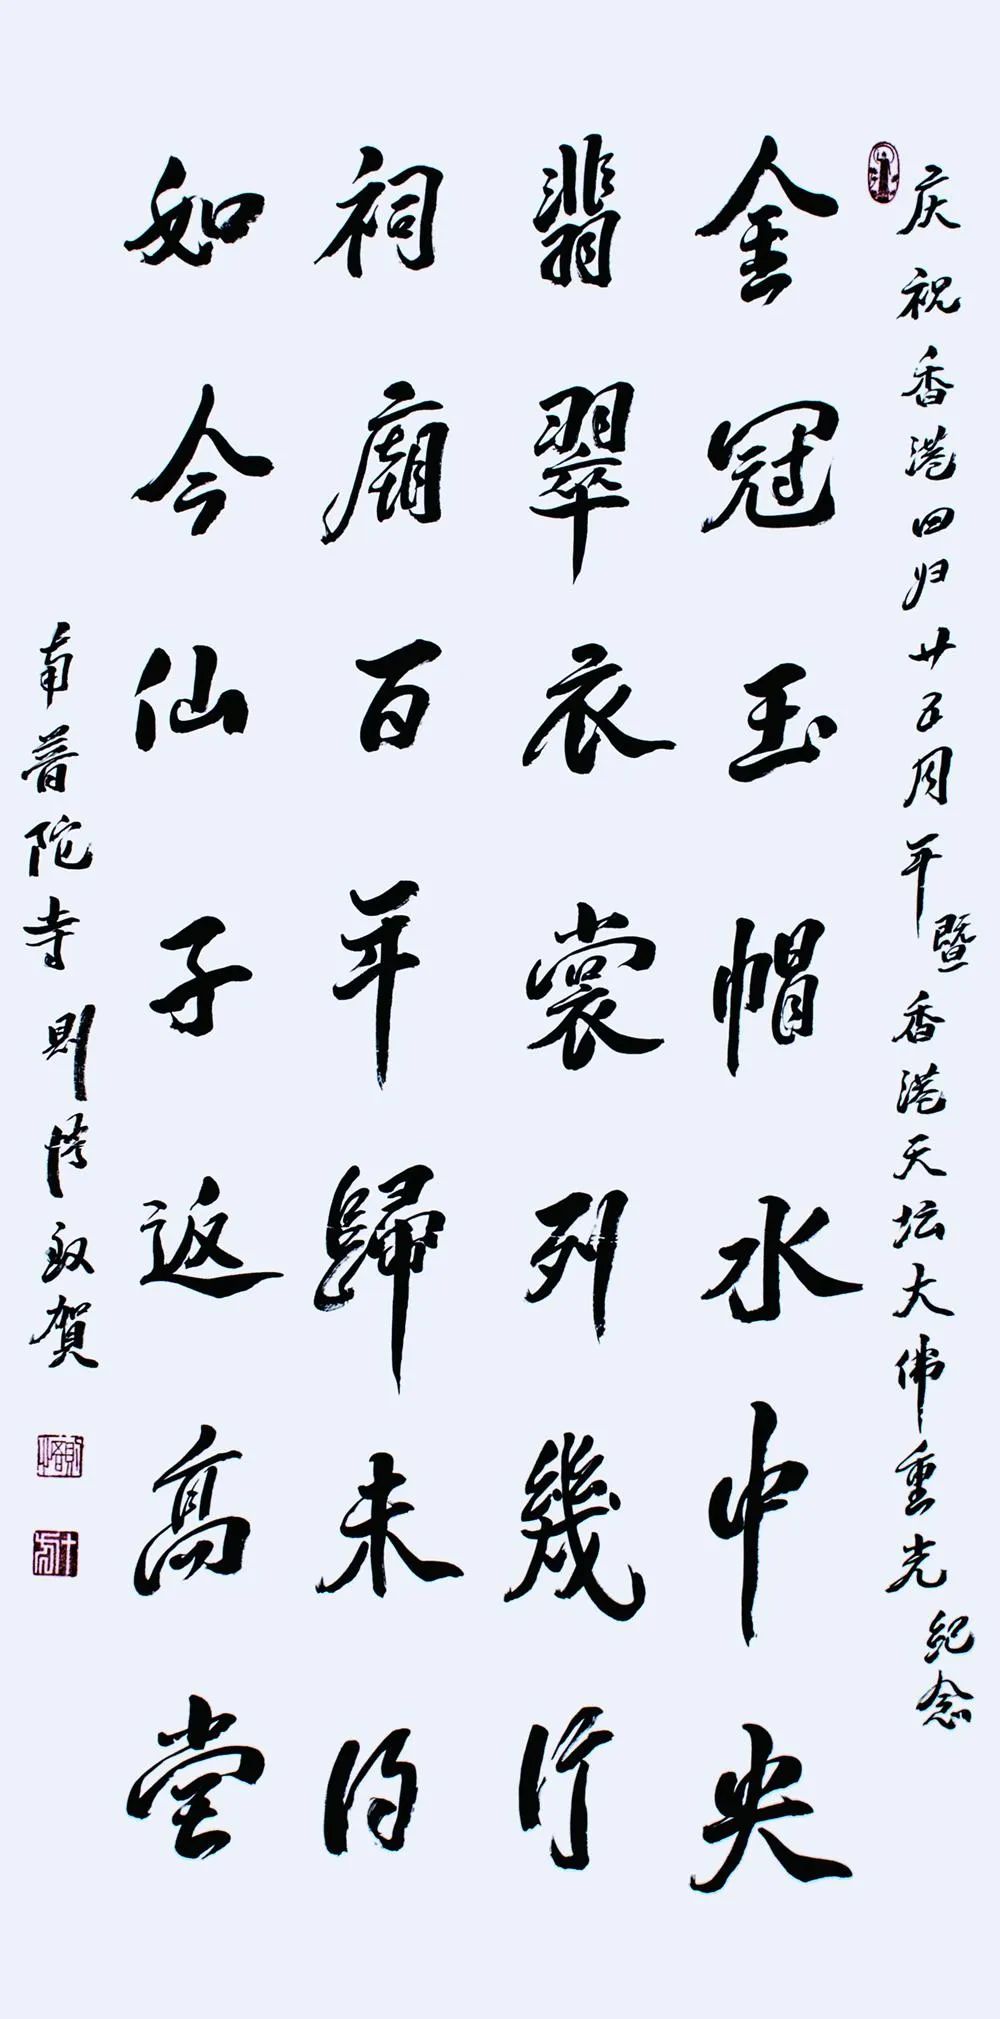 庆祝香港回归廿五周年暨香港天坛大佛重光纪念
金冠玉帽水中央
翡翠衣裳列几行
祠廟百年歸未得
如今仙子返高堂
南普陀寺則悟致贺
則悟